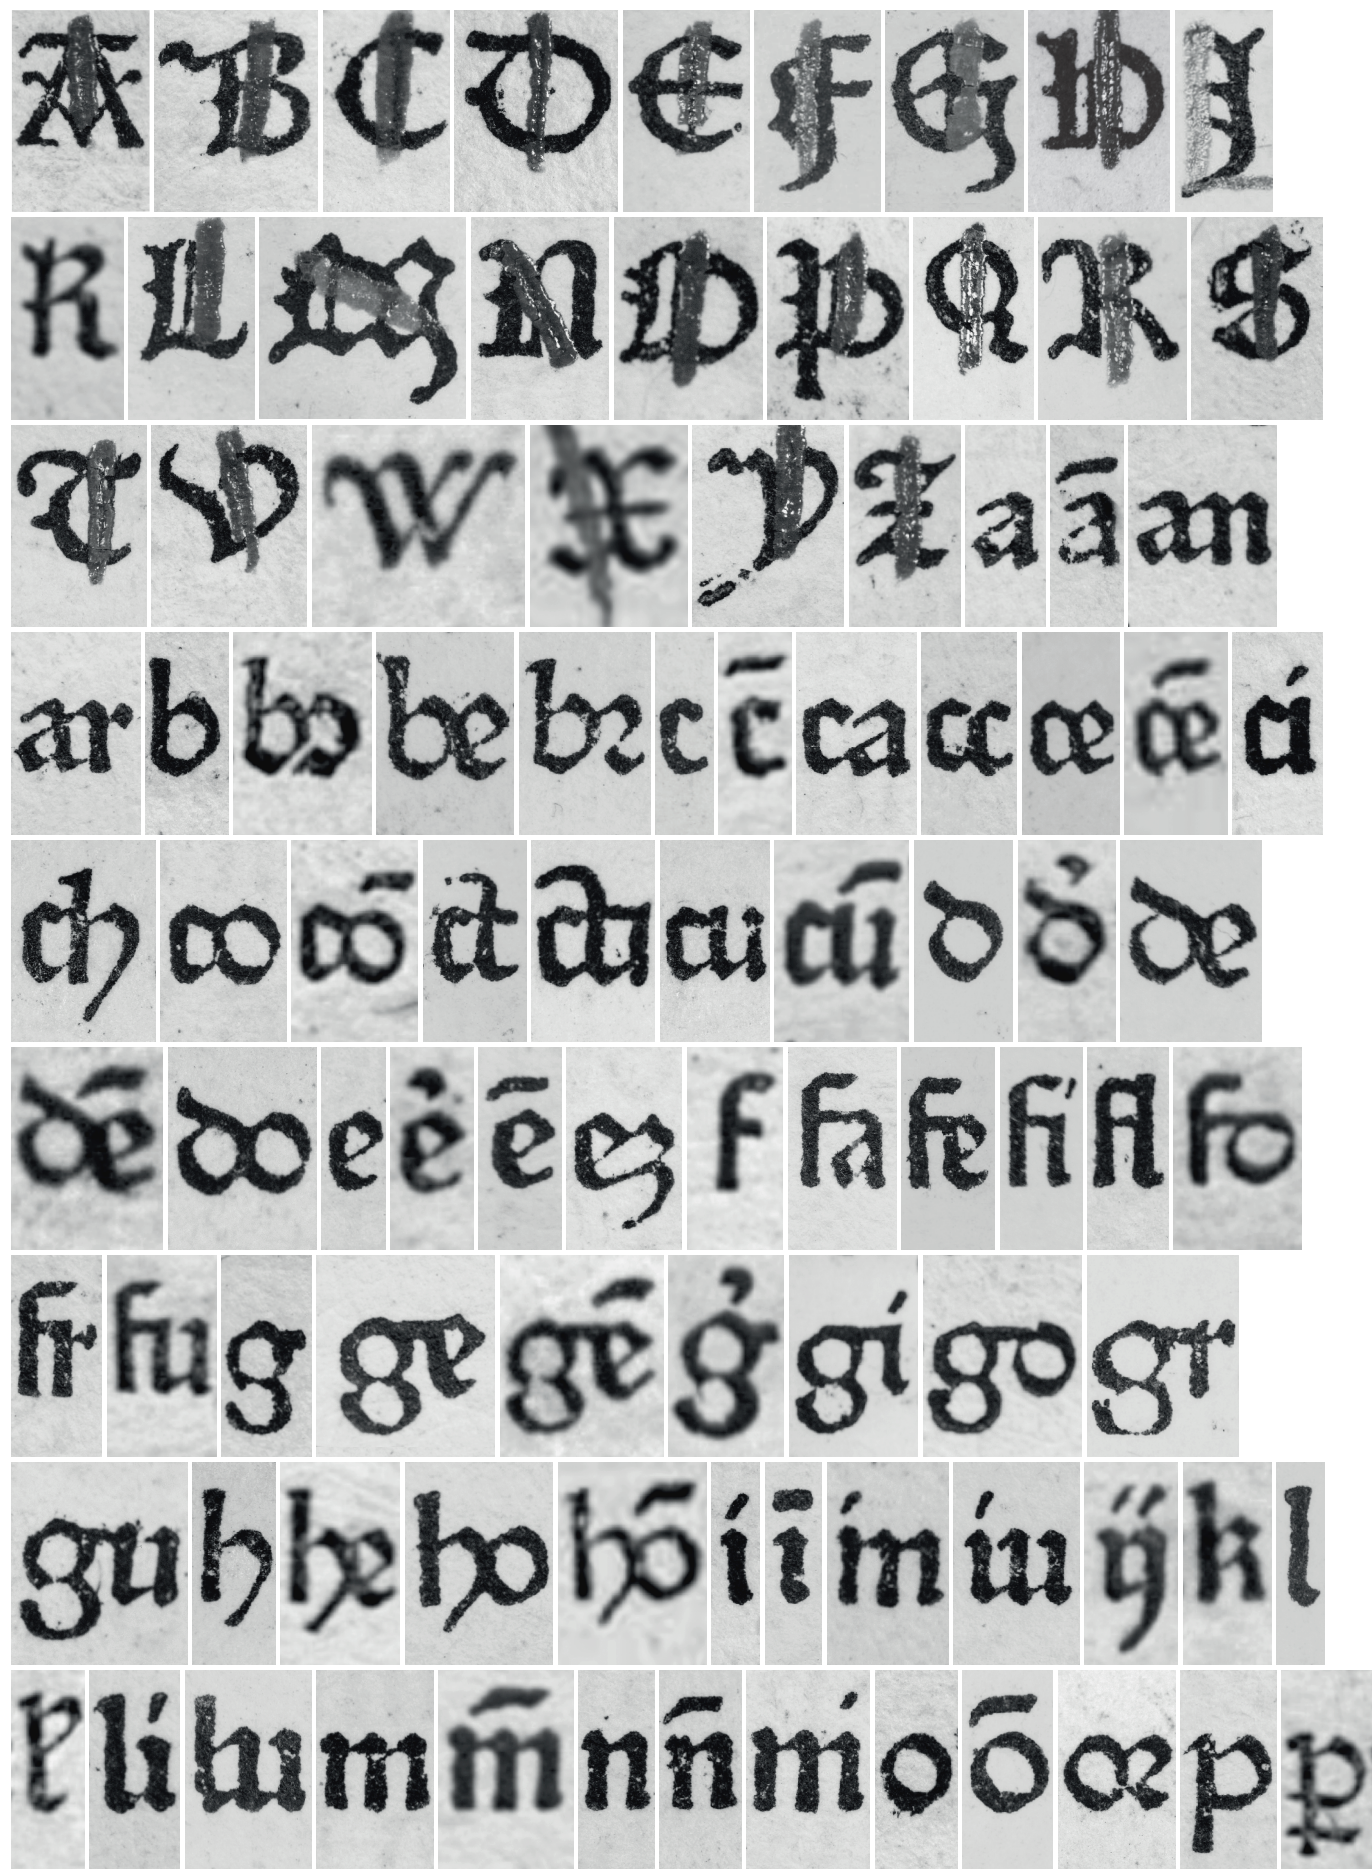 A B C D E F G H I
K L M N O P Q R S
T V W X Y Z a ā an
ar b bꝰ be bꝛ c c̄ ca cc ce cē ci
ch co cō ct ctu cu cū d d̉ de
dē do e ẻ ē eꝫ f fa fe fi fl fo
fr fu g ge gē g̉ gi go gr
gu h he ho hō i ī in iu ij k l
ꝉ li lu m m̄ n n̄ ni o ō oe p ꝑ